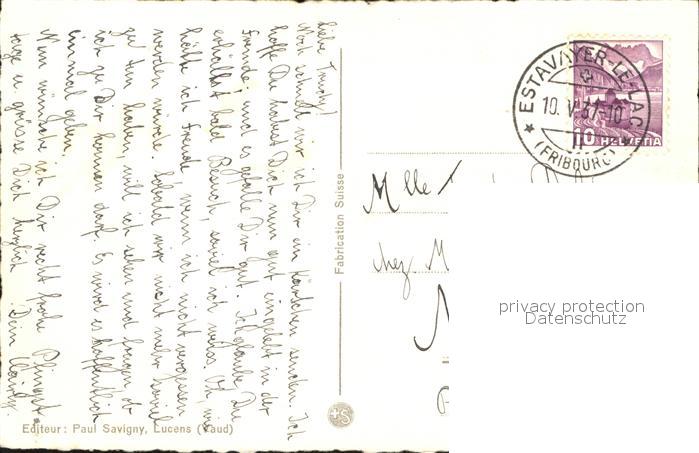 Liebe Trudy!
Noch schnell will ich Dir ein Kärtchen senden. Ich
hoffe Du habest Dich nun gut eingelebt in der
Fremde und es gefalle Dir gut. Ich glaube Du
erhältst bald Besuch, soviel ich weiss. Oh, wie
hätte ich Freude wenn ich nicht vergessen
werden würde. Sobald wir nicht mehr soviel
zu tun haben, will ich sehen und fragen ob
ich zu Dir kommen darf. Es wird es hoffentlich
einmal geben.
Nun wünsche ich Dir recht frohe Pfingst-
tage u. grüsse Dich herzlich Dein
Editeur: Paul Savigny, Lucens (Vaud)
Fabrication Suisse
+S
ESTAVAYER-LE-LAC
10. V. 37-10
(FRIBOURG)
10 HELVETIA
Mlle
chez M
privacy protection
Datenschutz